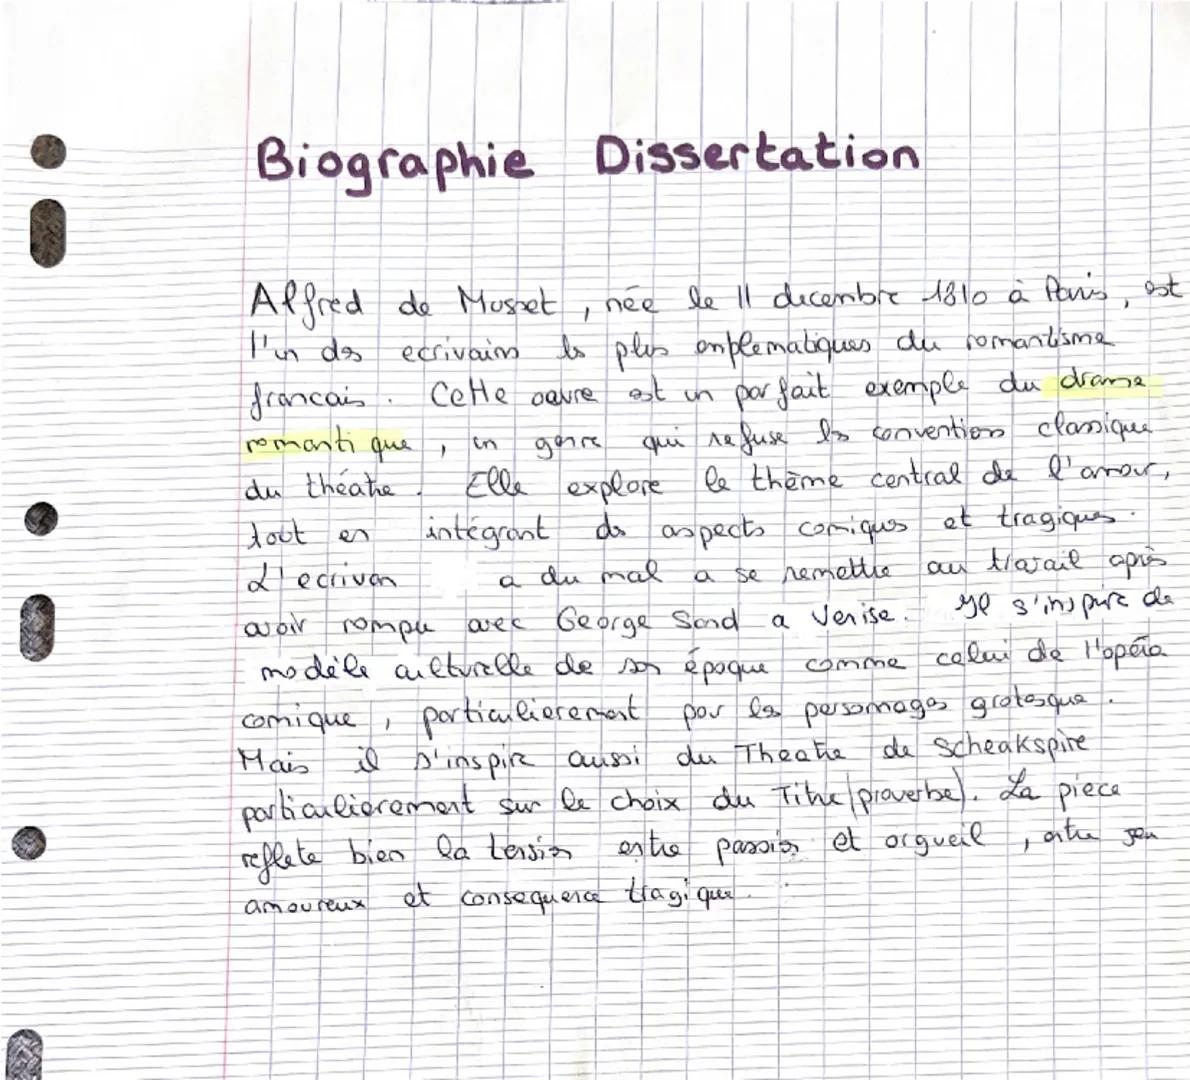 Biographie Dissertation
Alfred de Musset, née le 11 decembre 1810 à Paris, est
l'un des ecrivains les plus emblematiques du romantisme
francais. Cette oeuvre est un parfait exemple du drame
romantique, un genre qui refuse les conventions classique
du théatre. Elle explore le thème central de l'amour,
tout en intégrant des aspects comiques et tragiques.
L'ecrivan a du mal a se remettre au travail après
avoir rompu avec George Sand a Venise. Il s'inspire de
modèle culturelle de son époque comme celui de l'opéra
comique, particulierement par les personnages grotesque.
Mais il s'inspire aussi du Theatre de Scheakspire
particulierement sur le choix du Titre (proverbe). La piece
reflete bien la tension entre passion et orgueil, entre jeu
amoureux et consequence tragique.